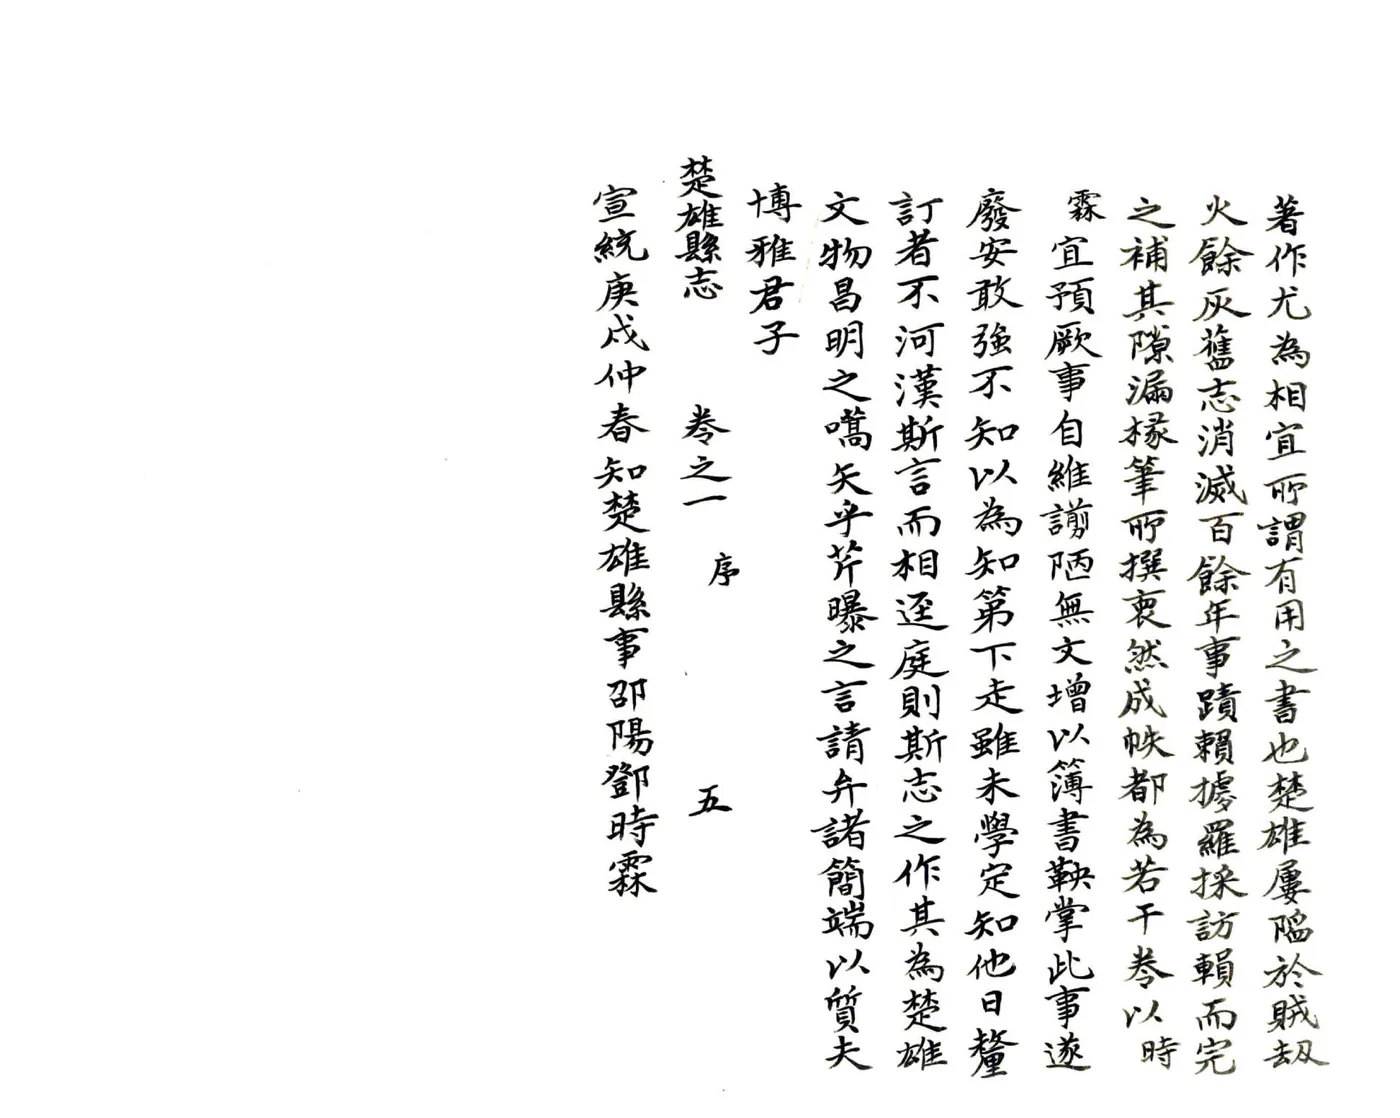 著作尤為相宜所謂有用之書也楚雄屢陷於賊刼
火餘灰舊志消滅百餘年事蹟賴摭羅採訪賴而完
之補其隙漏椽筆所撰裒然成帙都為若干卷以時
霖宜預厥事自維謭陋無文增以簿書鞅掌此事遂
廢安敢強不知以為知第下走雖未學定知他日釐
訂者不河漢斯言而相逕庭則斯志之作其為楚雄
文物昌明之嚆矢乎芹曝之言請弁諸簡端以質夫
博雅君子
楚雄縣志 卷之一 序 五
宣統庚戌仲春知楚雄縣事邵陽鄧時霖